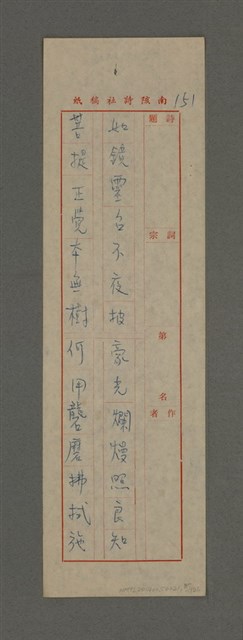 南陔詩社稿紙
151
詩題
詞宗
第 名
作者
如鏡靈台不夜披豪光爛熳照良知
菩提正覺本無樹何用礱磨拂拭施